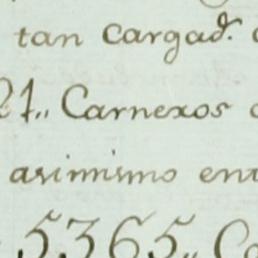 tan Cargad.r
21,, Carneros
asimismo ent
5365,, Ca